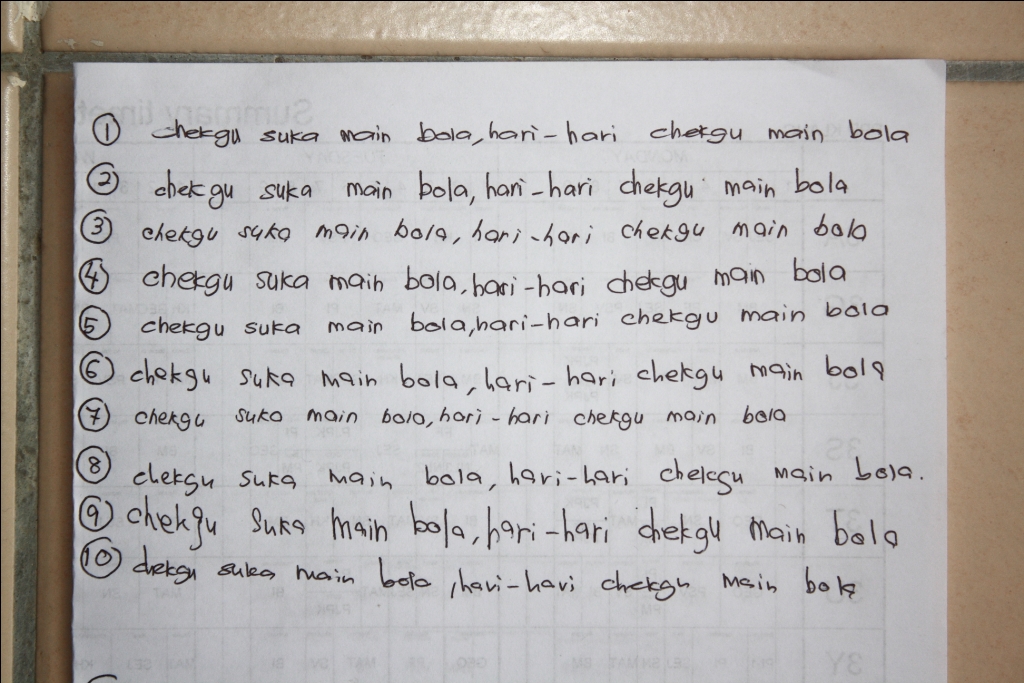 ① chekgu suka main bola, hari-hari chekgu main bola
② chekgu suka main bola, hari-hari chekgu main bola
③ chekgu suka main bola, hari-hari chekgu main bola
④ chekgu suka main bola, hari-hari chekgu main bola
⑤ chekgu suka main bola, hari-hari chekgu main bola
⑥ chekgu suka main bola, hari-hari chekgu main bola
⑦ chekgu suka main bola, hari-hari chekgu main bola
⑧ chekgu suka main bola, hari-hari chekgu main bola.
⑨ chekgu suka main bola, hari-hari chekgu main bola
⑩ chekgu suka main bola, hari-hari chekgu main bola